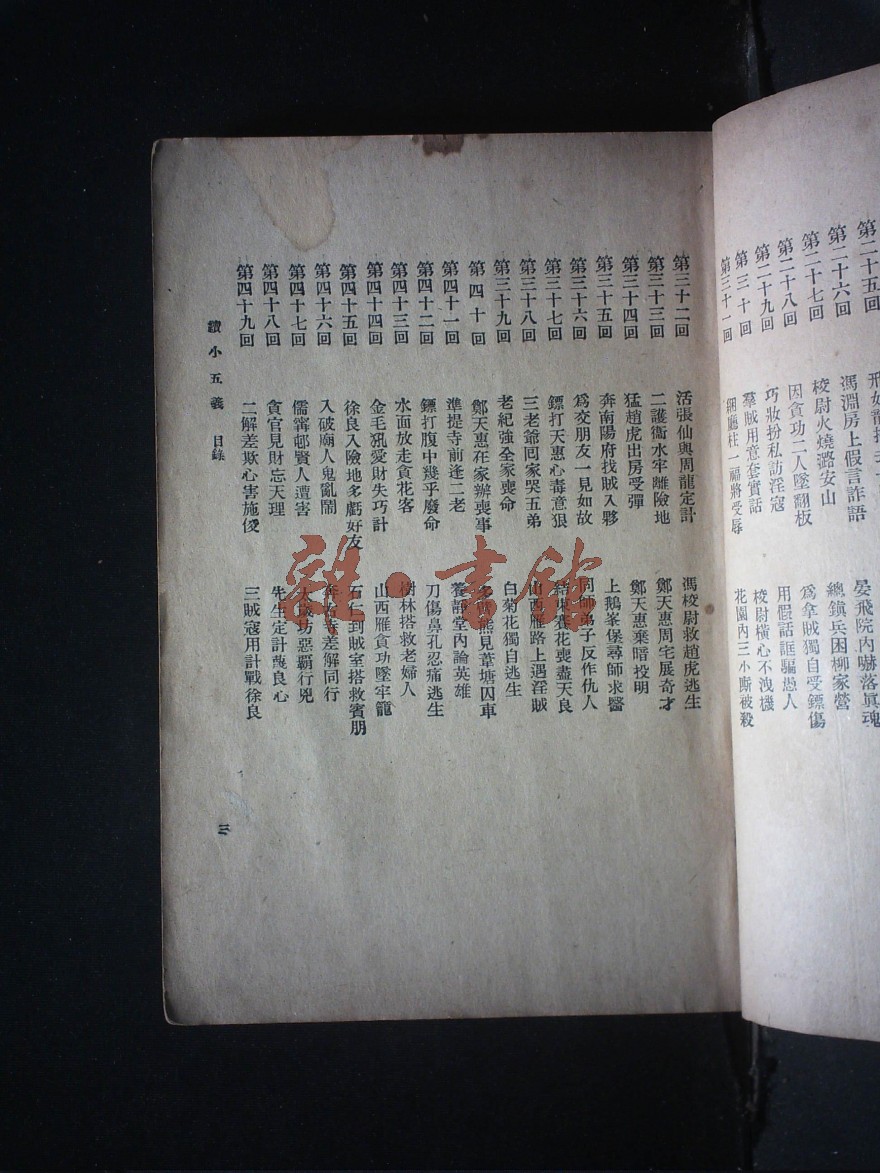 第二十五回
第二十六回 馮淵房上假言詐語 晏飛院內嚇落眞魂
第二十七回 校尉火燒潞安山 總鎭兵困柳家營
第二十八回 因貪功二人墜翻板 爲拿賊獨自受鏢傷
第二十九回 巧妝扮私訪淫寇 用假話誆騙愚人
第三十回 羣賊用意套實話 校尉橫心不洩機
第三十一回 綑廳柱一福將受辱 花園內三小廝被殺
第三十二回 活張仙與周龍定計 馮校尉救趙虎逃生
第三十三回 二護衞水牢離險地 鄭天惠周宅展奇才
第三十四回 猛趙虎出房受彈 鄭天惠棄暗投明
第三十五回 奔南陽府找賊入夥 上鵝峯堡尋師求醫
第三十六回 爲交朋友一見如故 同師弟子反作仇人
第三十七回 鏢打天惠心毒意狠 花喪盡天良
第三十八回 三老爺回家哭五弟 山西雁路上遇淫賊
第三十九回 老紀強全家喪命 白菊花獨自逃生
第四十回 鄭天惠在家辦喪事 熊見葦塘囚車
第四十一回 準提寺前逢二老 養靜堂內論英雄
第四十二回 鏢打腹中幾乎廢命 刀傷鼻孔忍痛逃生
第四十三回 水面放走貪花客 樹林搭救老婦人
第四十四回 金毛犼愛財失巧計 山西雁貪功墜牢籠
第四十五回 徐良入險地多虧好友 石仁到賊室搭救賓朋
第四十六回 入破廟人鬼亂鬧 奔寺差解同行
第四十七回 儒甯邨賢人遭害 太歲坊惡霸行兇
第四十八回 貪官見財忘天理 先生定計蔑良心
第四十九回 二解差欺心害施俊 三賊寇用計戰徐良
續小五義 目錄
三
雜·書館